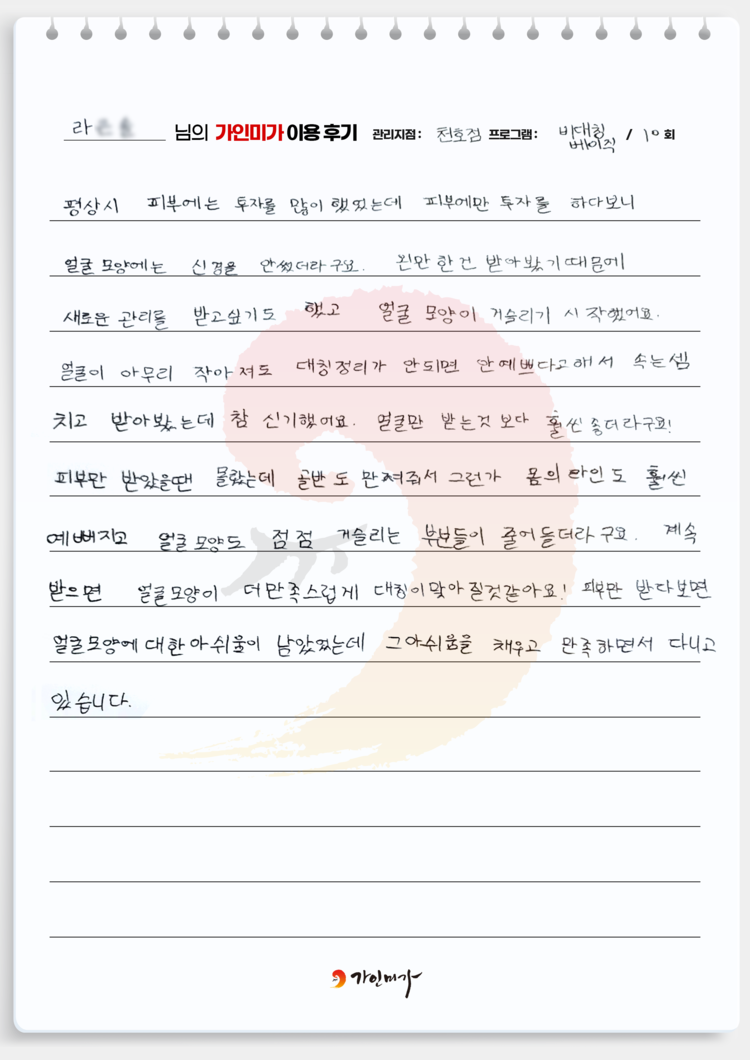 라 님의 가인미가 이용 후기 관리지점 : 천호점 프로그램 : 비대칭 베이직 / 10 회
평상시 피부에는 투자를 많이 했었는데 피부에만 투자를 하다보니
얼굴 모양에는 신경을 안썼더라구요. 왼만한건 받아봤기때문에
새로운 관리를 받고싶기도 했고 얼굴 모양이 거슬리기 시작했어요.
얼굴이 아무리 작아져도 대칭정리가 안되면 안예쁘다고해서 속는셈
치고 받아봤는데 참 신기했어요. 얼굴만 받는것 보다 훨씬 좋더라구요!
피부만 받았을땐 몰랐는데 골반도 만져줘서 그런가 몸의 라인도 훨씬
예뻐지고 얼굴모양도 점점 거슬리는 부분들이 줄어들더라구요. 계속
받으면 얼굴모양이 더만족스럽게 대칭이맞아질것같아요! 피부만 받다보면
얼굴모양에대한아쉬움이 남았었는데 그아쉬움을 채우고 만족하면서 다니고
있습니다.
가인미가